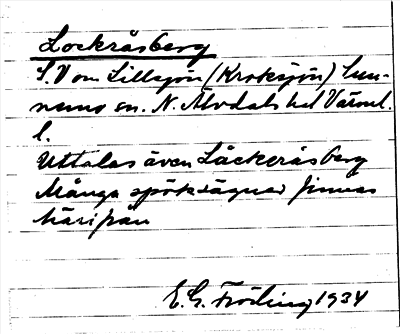 Lockråsberg
S.V om Lillsjön (Kroksjön) Gun-
neruds sn. N. Älvdals hd Värml.
l.
Uttalas även Låckeråsberg
Många spöksägner finnas
härifrån
E.G. Fröding 1934